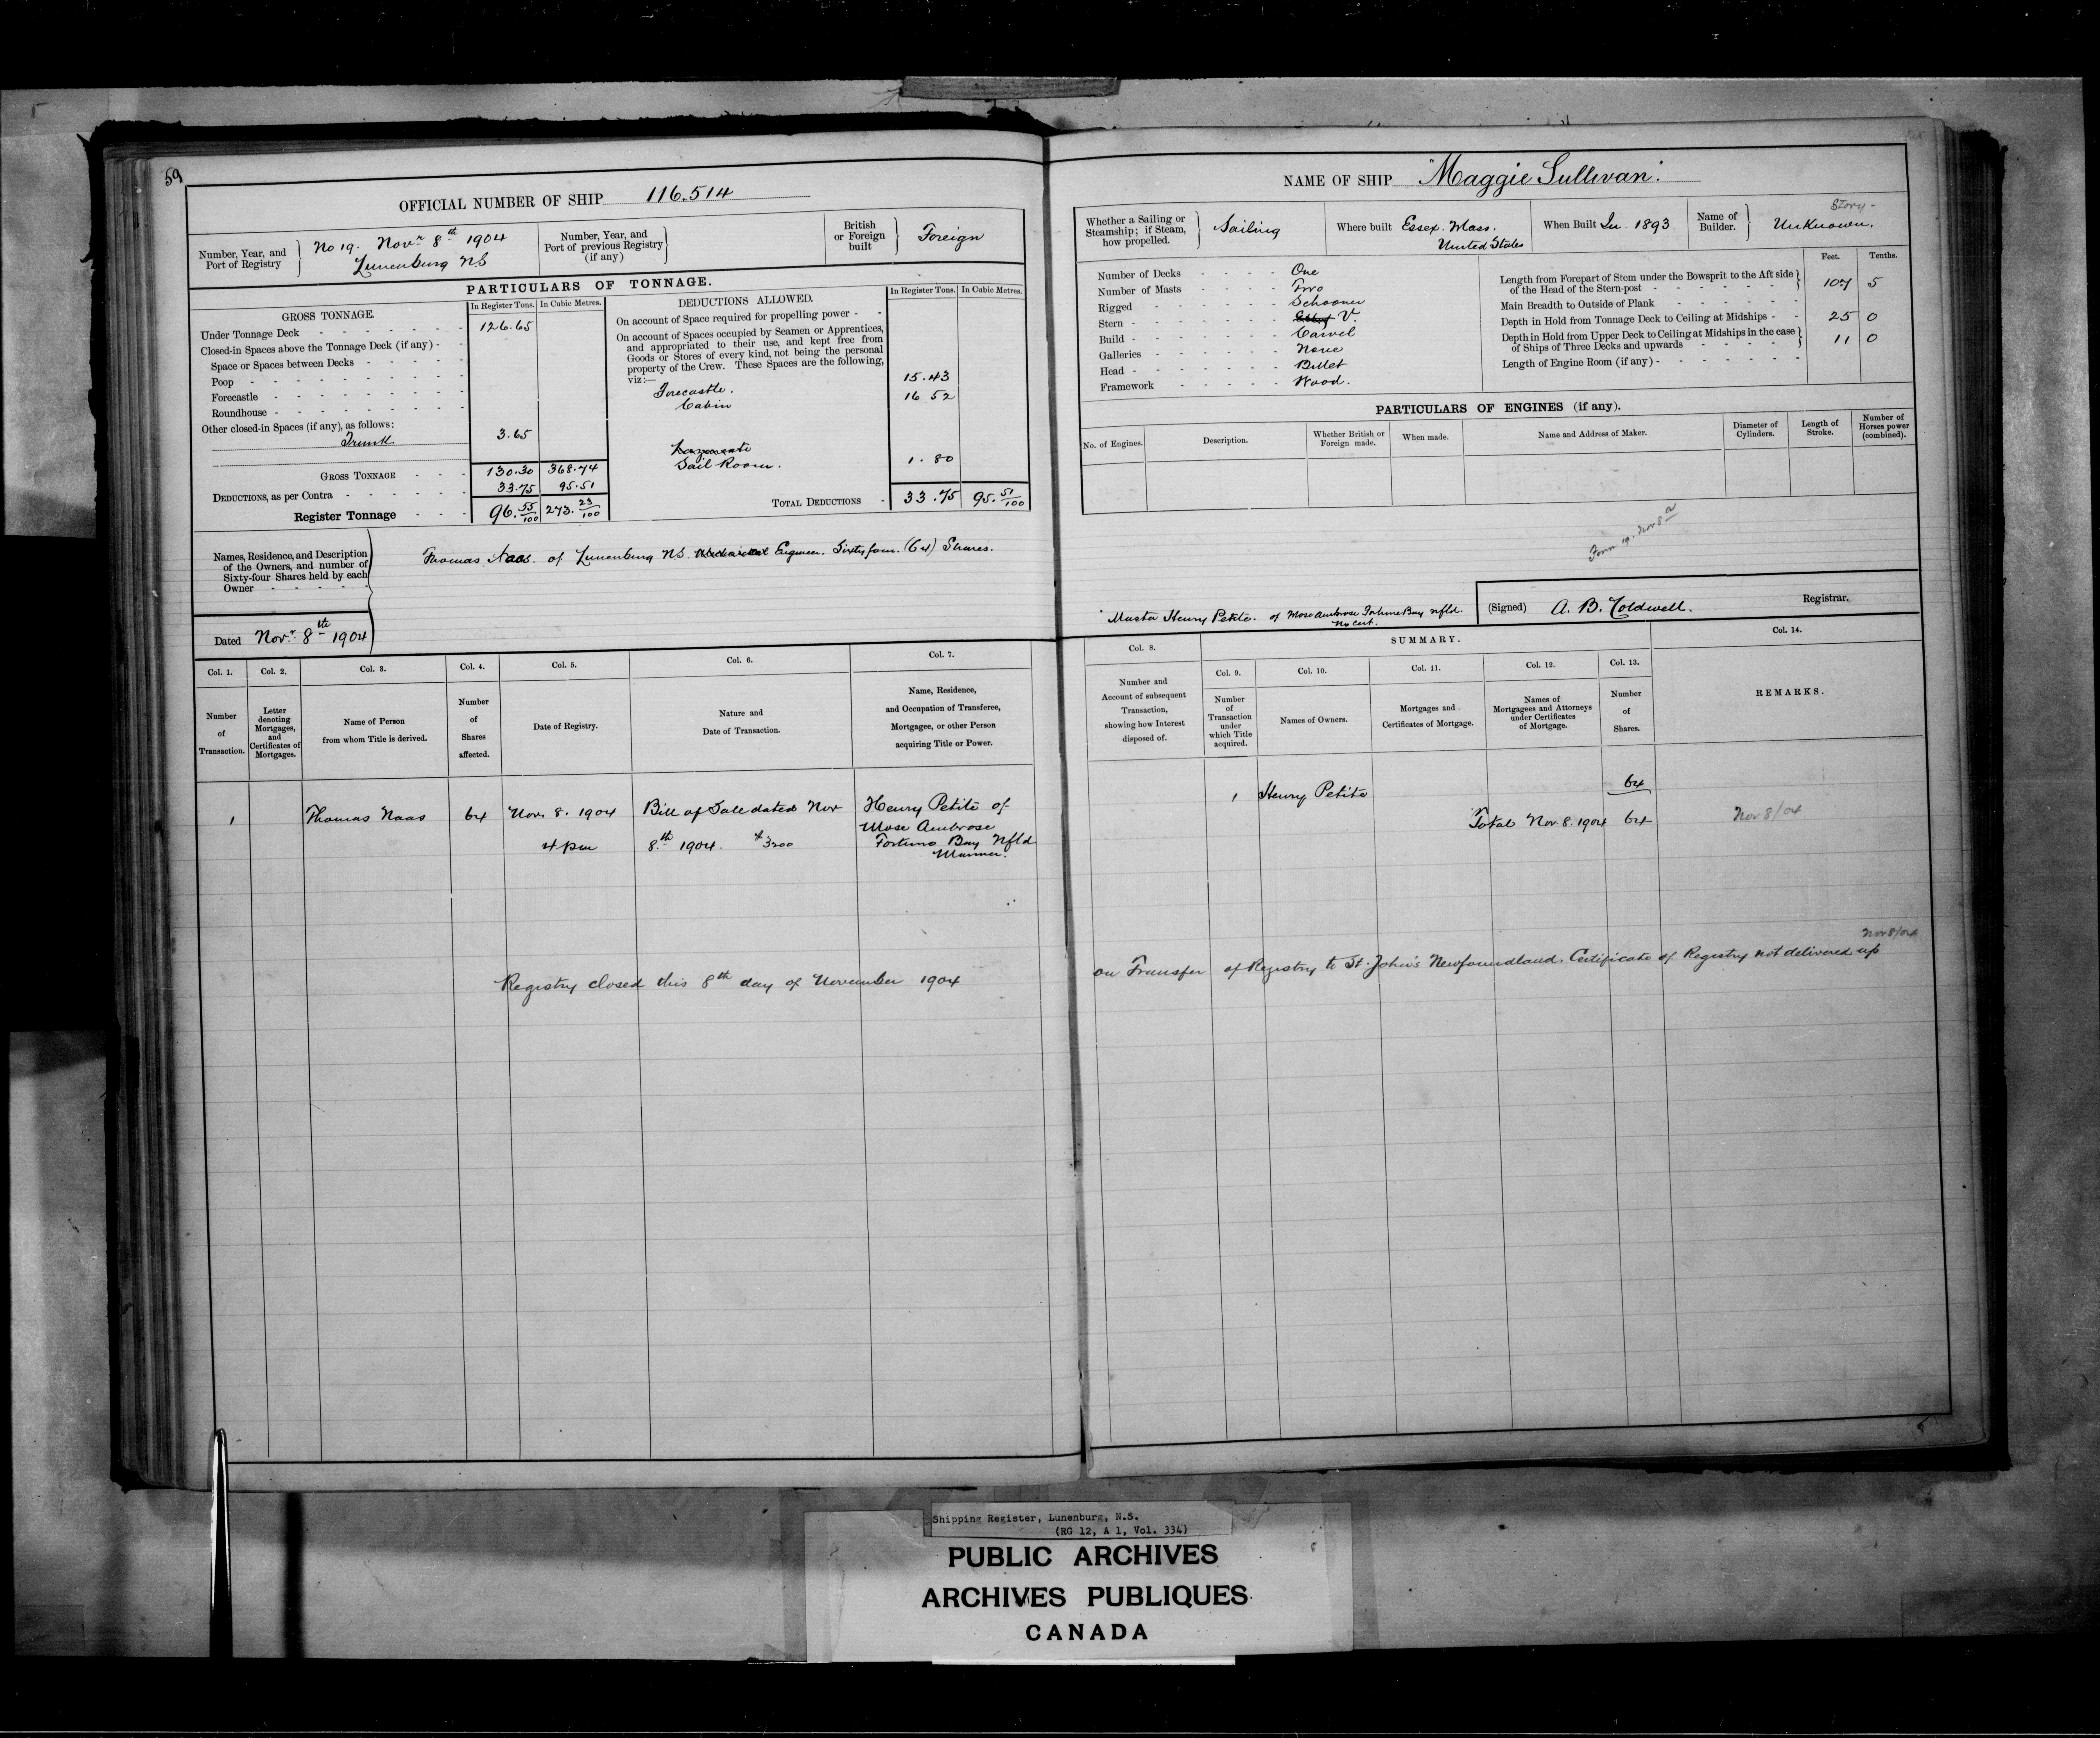 59
OFFICIAL NUMBER OF SHIP 116.514
Number, Year, and Port of Registry } No 19. Novr 8th 1904 Lunenburg NS
Number, Year, and Port of previous Registry (if any) }
British or Foreign built } Foreign
PARTICULARS OF TONNAGE.
GROSS TONNAGE. In Register Tons. In Cubic Metres.
Under Tonnage Deck 126.65
Closed-in Spaces above the Tonnage Deck (if any) -
Space or Spaces between Decks
Poop
Forecastle
Roundhouse
Other closed-in Spaces (if any), as follows:
Trunk 3.65
GROSS TONNAGE 130.30 368.74
DEDUCTIONS, as per Contra 33.75 95.51
Register Tonnage 96.55/100 273.23/100
DEDUCTIONS ALLOWED. In Register Tons. In Cubic Metres.
On account of Space required for propelling power -
On account of Spaces occupied by Seamen or Apprentices,
and appropriated to their use, and kept free from
Goods or Stores of every kind, not being the personal
property of the Crew. These Spaces are the following,
viz:—
Forecastle. 15.43
Cabin 16 52
Sail Room. 1.80
TOTAL DEDUCTIONS 33.75 95.51/100
Names, Residence, and Description
of the Owners, and number of
Sixty-four Shares held by each
Owner
Thomas Naas. of Lunenburg NS. Engineer. Sixty four. (64) Shares.
Dated Novr. 8th 1904
Col. 1. Col. 2. Col. 3. Col. 4. Col. 5. Col. 6. Col. 7.
Number of Transaction.
Letter denoting Mortgages, and Certificates of Mortgages.
Name of Person from whom Title is derived.
Number of Shares affected.
Date of Registry.
Nature and Date of Transaction.
Name, Residence, and Occupation of Transferee, Mortgagee, or other Person acquiring Title or Power.
1 Thomas Naas 64 Nov. 8. 1904 Bill of Sale dated Nov Henry Petite of
Mose Ambrose
4 pm 8th 1904. $3200 Fortune Bay Nfld
Mariner.
Registry closed this 8th day of November 1904
NAME OF SHIP "Maggie Sullivan".
Whether a Sailing or Steamship; if Steam, how propelled. } Sailing
Where built Essex. Mass. United States
When Built In 1893
Name of Builder. } Story - Unknown.
Number of Decks One
Number of Masts Two
Rigged Schooner
Stern V.
Build Carvel
Galleries None
Head Billet
Framework Wood.
Feet. Tenths.
Length from Forepart of Stem under the Bowsprit to the Aft side
of the Head of the Stern-post 107 5
Main Breadth to Outside of Plank
Depth in Hold from Tonnage Deck to Ceiling at Midships 25 0
Depth in Hold from Upper Deck to Ceiling at Midships in the case
of Ships of Three Decks and upwards 11 0
Length of Engine Room (if any)
PARTICULARS OF ENGINES (if any).
No. of Engines. Description. Whether British or Foreign made. When made. Name and Address of Maker. Diameter of Cylinders. Length of Stroke. Number of Horses power (combined).
Form 19. Nov 8
Master Henry Petite. of Mose Ambrose Fortune Bay Nfld.
No cert.
(Signed) A. B. Coldwell. Registrar.
Col. 8. SUMMARY. Col. 14.
Col. 9. Col. 10. Col. 11. Col. 12. Col. 13.
Number and Account of subsequent Transaction, showing how Interest disposed of.
Number of Transaction under which Title acquired.
Names of Owners.
Mortgages and Certificates of Mortgage.
Names of Mortgagees and Attorneys under Certificates of Mortgage.
Number of Shares.
REMARKS.
1 Henry Petite 64
Total Nov 8. 1904 64 Nov 8/04
Nov 8/04
on Transfer of Registry to St. John's Newfoundland. Certificate of Registry not delivered up
Shipping Register, Lunenburg, N.S.
(RG 12, A 1, Vol. 334)
PUBLIC ARCHIVES
ARCHIVES PUBLIQUES
CANADA